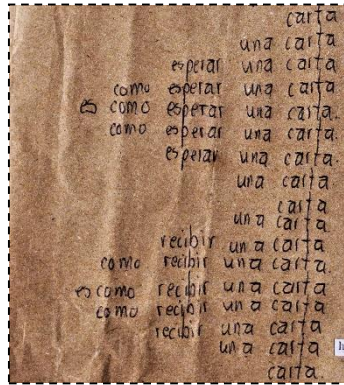 carta
una carta
esperar una carta.
como esperar una carta.
es como esperar una carta.
como esperar una carta.
esperar una carta.
una carta.
carta
una carta
recibir una carta
como recibir una carta.
es como recibir una carta
como recibir una carta
recibir una carta
una carta
carta.